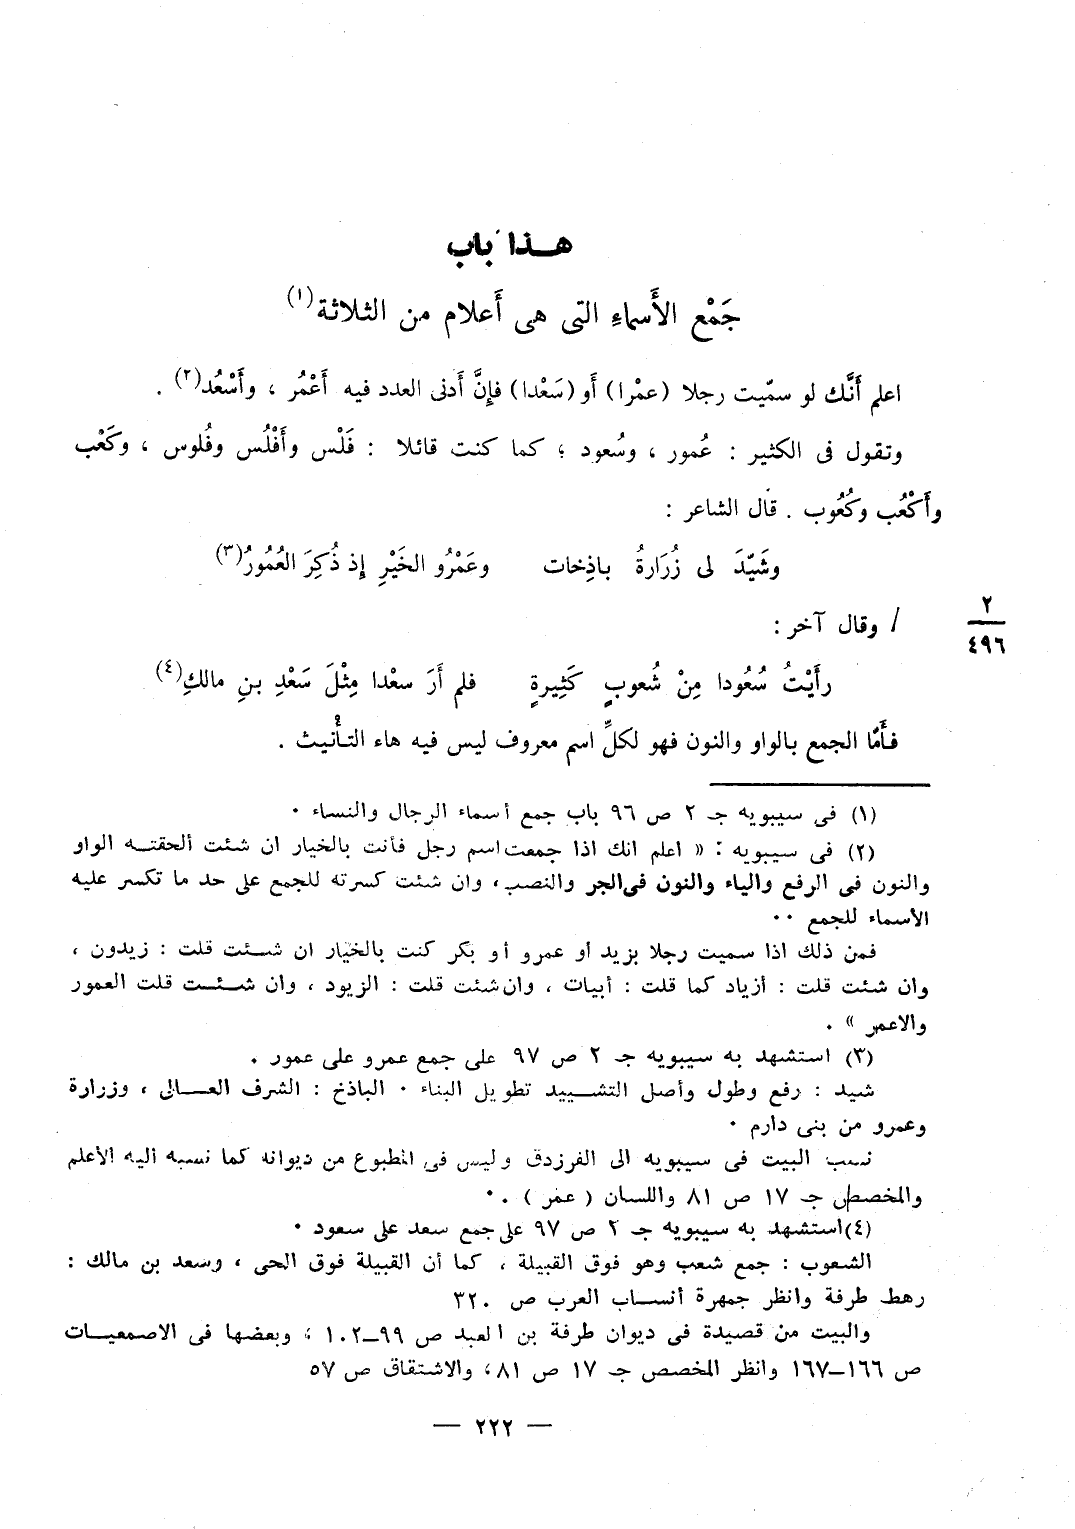 هـذا باب
جَمْع الأَسماءِ التى هى أَعلام من الثلاثة(١)
اعلم أَنَّك لو سمّيت رجلا (عمْرا) أَو (سَعْدا) فإِنَّ أَدنى العدد فيه أَعْمُر ، وأَسْعُد(٢) .
وتقول فى الكثير : عُمور ، وسُعود ؛ كما كنت قائلا : فَلْس وأَفْلُس وفُلوس ، وكَعْب
وأَكْعُب وكُعُوب . قال الشاعر :
وشَيّدَ لى زُرَارةُ باذِخات وعَمْرُو الخَيْرِ إِذ ذُكِرَ العُمُورُ(٣)
/ وقال آخر :
٢
٤٩٦
رأَيْتُ سُعُودا مِنْ شُعوبٍ كَثِيرةٍ فلم أَرَ سعْدا مِثْلَ سَعْدِ بنِ مالكِ(٤)
فأَمّا الجمع بالواو والنون فهو لكلِّ اسم معروف ليس فيه هاء التأْنيث .
(١) فى سيبويه جـ ٢ ص ٩٦ باب جمع أسماء الرجال والنساء ٠
(٢) فى سيبويه : « اعلم انك اذا جمعت اسم رجل فأنت بالخيار ان شئت ألحقتـه الواو
والنون فى الرفع والياء والنون فى الجر والنصب ، وان شئت كسرته للجمع على حد ما تكسر عليه
الأسماء للجمع ٠٠
فمن ذلك اذا سميت رجلا بزيد أو عمرو أو بكر كنت بالخيار ان شـئت قلت : زيدون ،
وان شئت قلت : أزياد كما قلت : أبيات ، وان شئت قلت : الزيود ، وان شـئت قلت العمور
والاعمر » .
(٣) استشهد به سيبويه جـ ٢ ص ٩٧ على جمع عمرو على عمور .
شيد : رفع وطول وأصل التشـييد تطويل البناء ٠ الباذخ : الشرف العـالى ، وزرارة
وعمرو من بنى دارم ٠
نسب البيت فى سيبويه الى الفرزدق وليس فى المطبوع من ديوانه كما نسبه اليه الأعلم
والمخصص جـ ١٧ ص ٨١ واللسان ( عمر ) .
(٤) استشهد به سيبويه جـ ٢ ص ٩٧ على جمع سعد على سعود ٠
الشعوب : جمع شعب وهو فوق القبيلة ، كما أن القبيلة فوق الحى ، وسعد بن مالك :
رهط طرفة وانظر جمهرة أنسـاب العرب ص ٣٢٠
والبيت من قصيدة فى ديوان طرفة بن العبد ص ٩٩ــ١٠٢ ، وبعضها فى الاصمعيـات
ص ١٦٦ــ١٦٧ وانظر المخصص جـ ١٧ ص ٨١، والاشتقاق ص ٥٧
— ٢٢٢ —